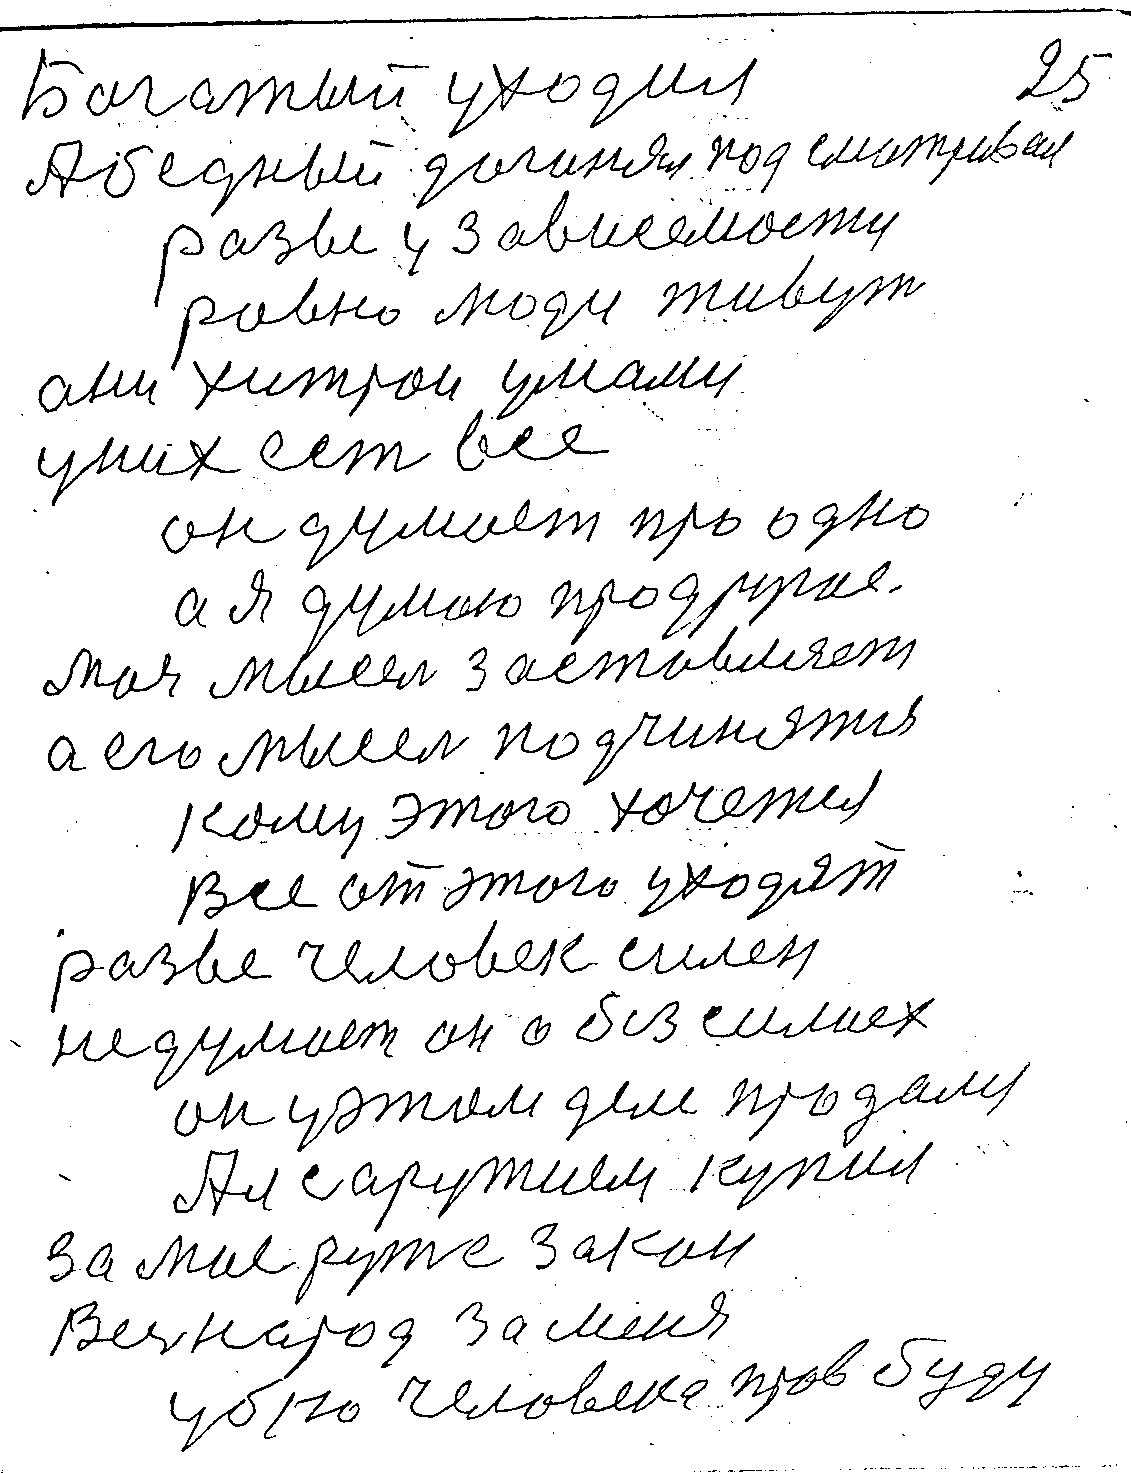 Богатый уходил 25
А бедный догинял подсматривал
разве у зависемости
равно люди живут
ани хитрои умами
уних сет все
он думает про одно
а я думаю продругое.
моя мысел заставляет
а его мысел подчинятся
кому этого хочется
все от этого уходят
разве человек силен
недумает он о безсилиех
он уэтом деле продали
Ал саружием купил
за мое руже закон
Весьнарод за меня
убю человека прав буду